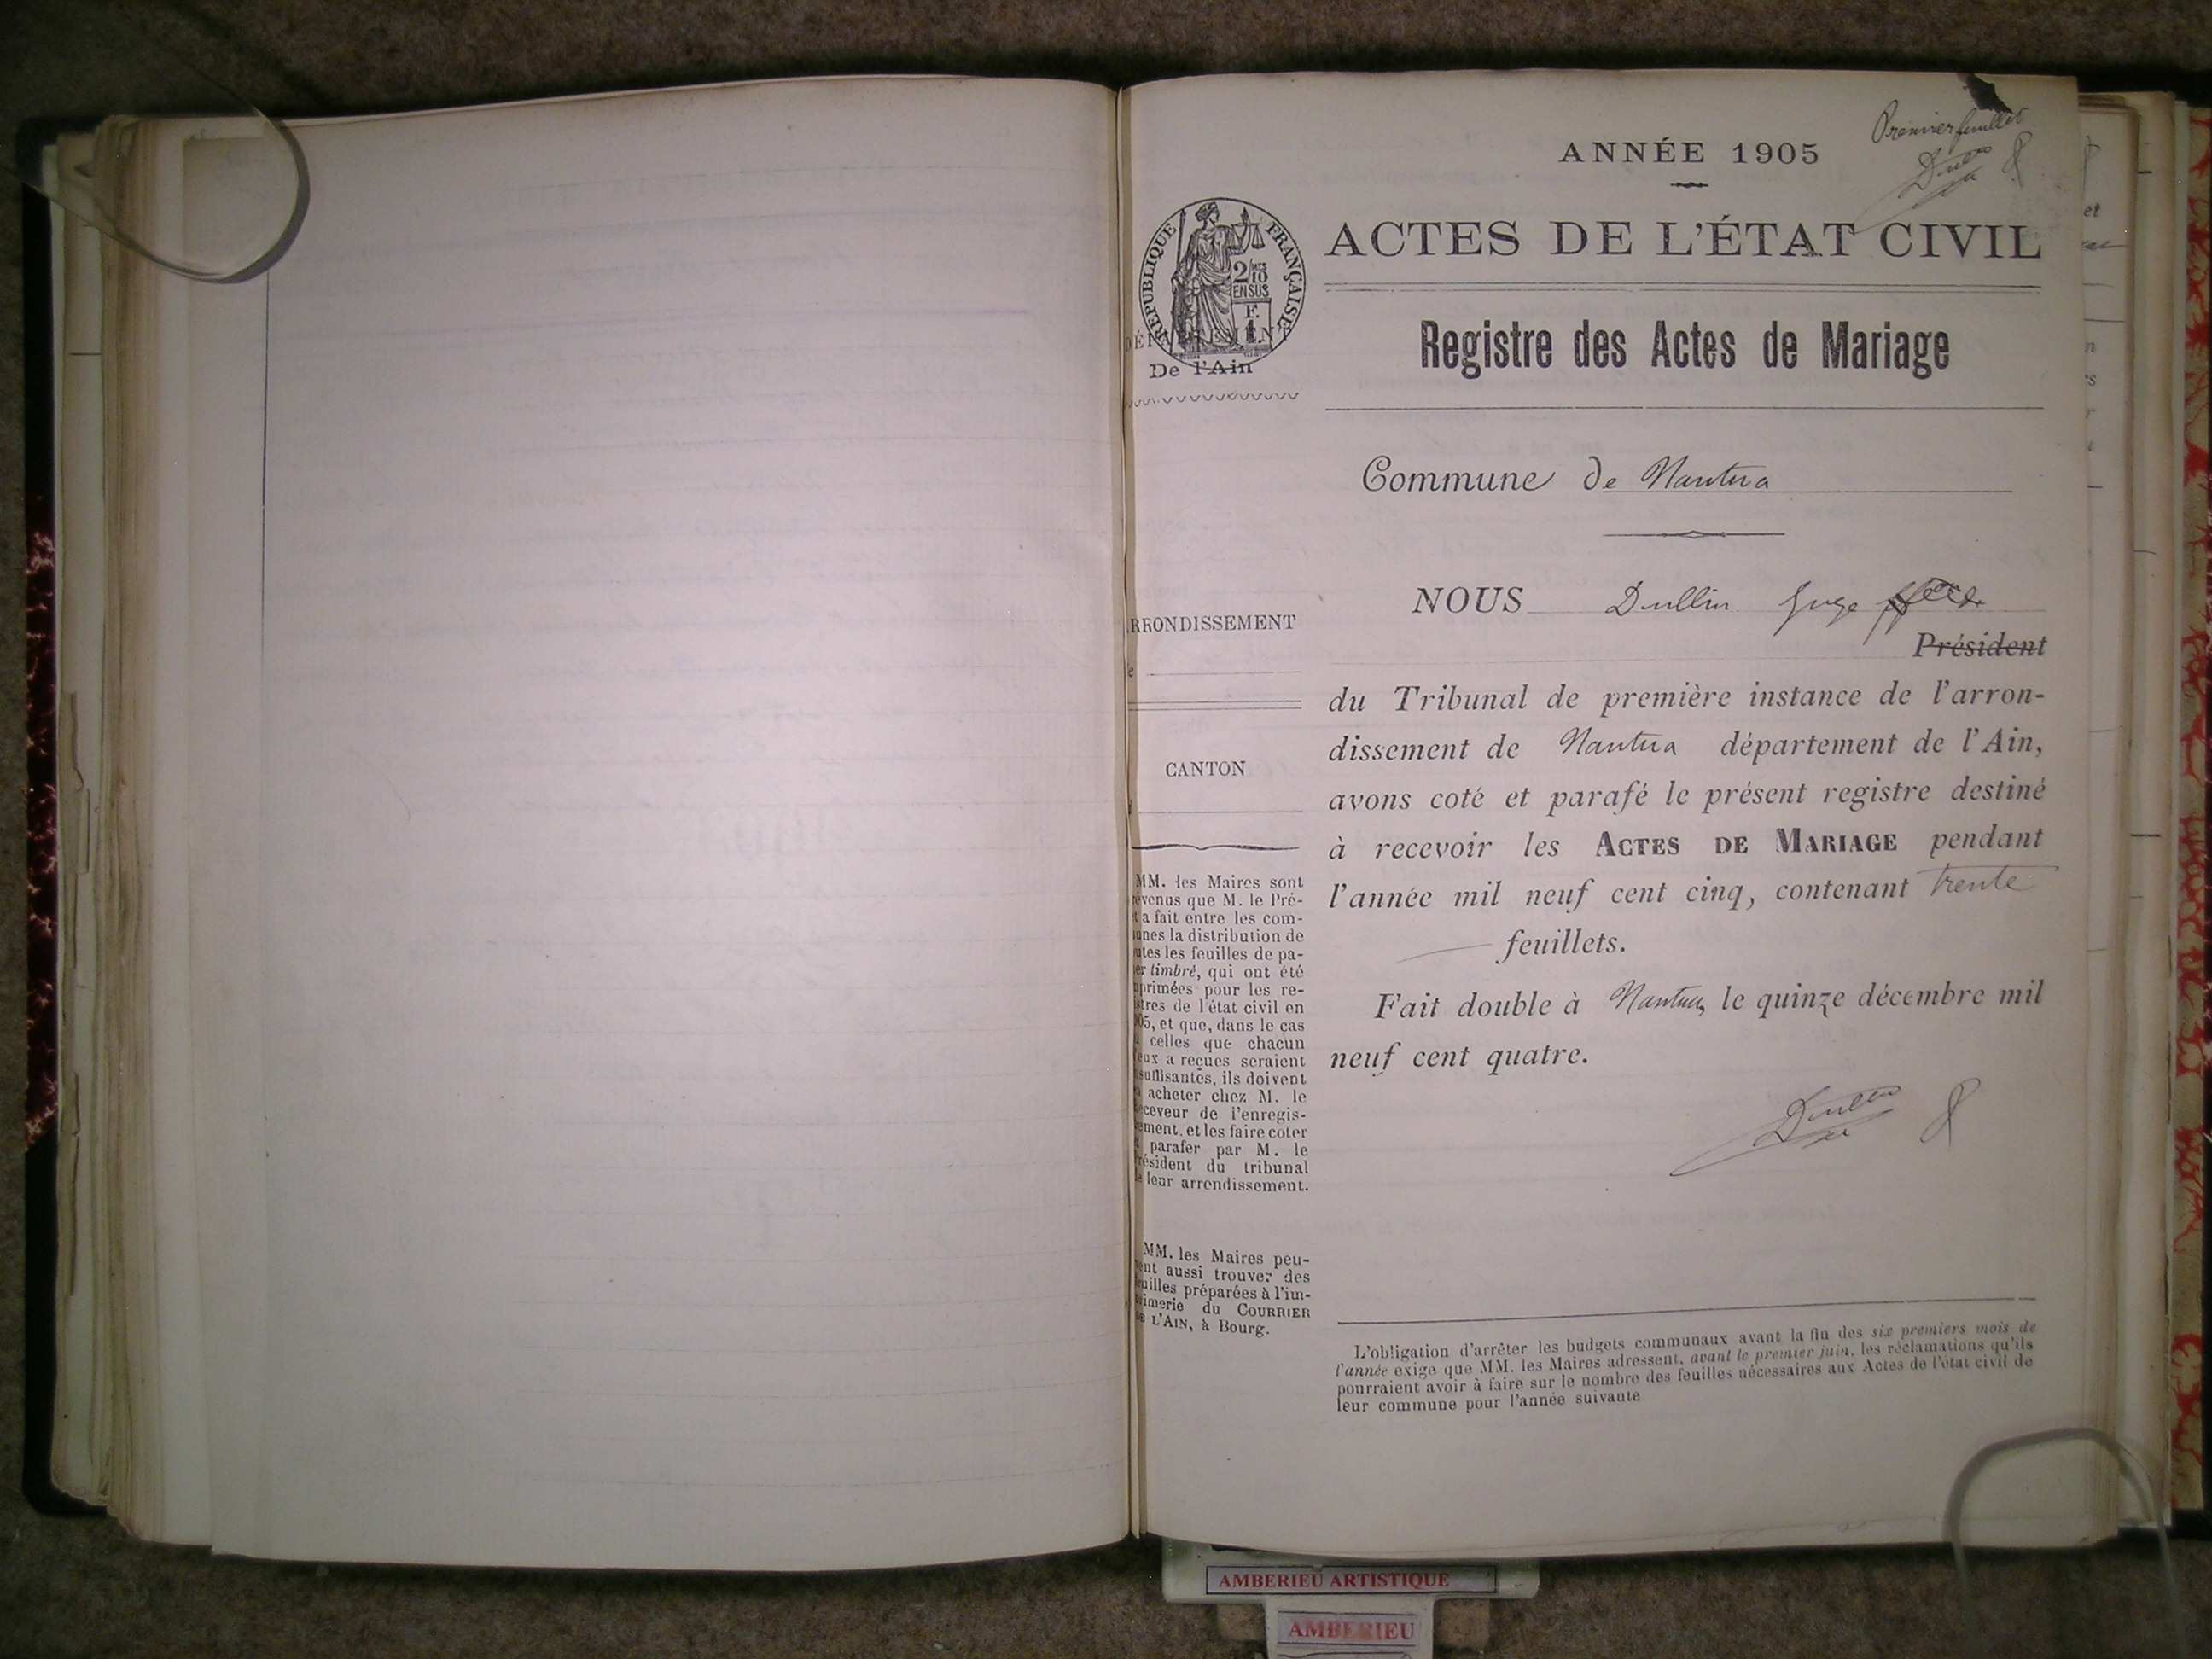 Premier feuillet
Dullin
ANNÉE 1905
ACTES DE L'ÉTAT CIVIL
RÉPUBLIQUE FRANÇAISE
2/10
EN SUS
F.
1.
DÉPARTEMENT
De l'Ain
Registre des Actes de Mariage
Commune de Nantua
NOUS Dullin Juge
Président
du Tribunal de première instance de l'arron-
dissement de Nantua département de l'Ain,
avons coté et parafé le présent registre destiné
à recevoir les ACTES DE MARIAGE pendant
l'année mil neuf cent cinq, contenant trente
feuillets.
Fait double à Nantua, le quinze décembre mil
neuf cent quatre.
Dullin
RRONDISSEMENT
e
CANTON
MM. les Maires sont
évenus que M. le Pré-
t a fait entre les com-
unes la distribution de
utes les feuilles de pa-
er timbré, qui ont été
primées pour les re-
stres de l'état civil en
05, et que, dans le cas
celles que chacun
eux a reçues seraient
suffisantes, ils doivent
acheter chez M. le
ceveur de l'enregis-
ement, et les faire coter
parafer par M. le
résident du tribunal
e leur arrondissement.
MM. les Maires peu-
ent aussi trouver des
uilles préparées à l'im-
imerie du COURRIER
E L'AIN, à Bourg.
L'obligation d'arrêter les budgets communaux avant la fin des six premiers mois de
l'année exige que MM. les Maires adressent, avant le premier juin, les réclamations qu'ils
pourraient avoir à faire sur le nombre des feuilles nécessaires aux Actes de l'état civil de
leur commune pour l'année suivante
AMBERIEU ARTISTIQUE
AMBERIEU